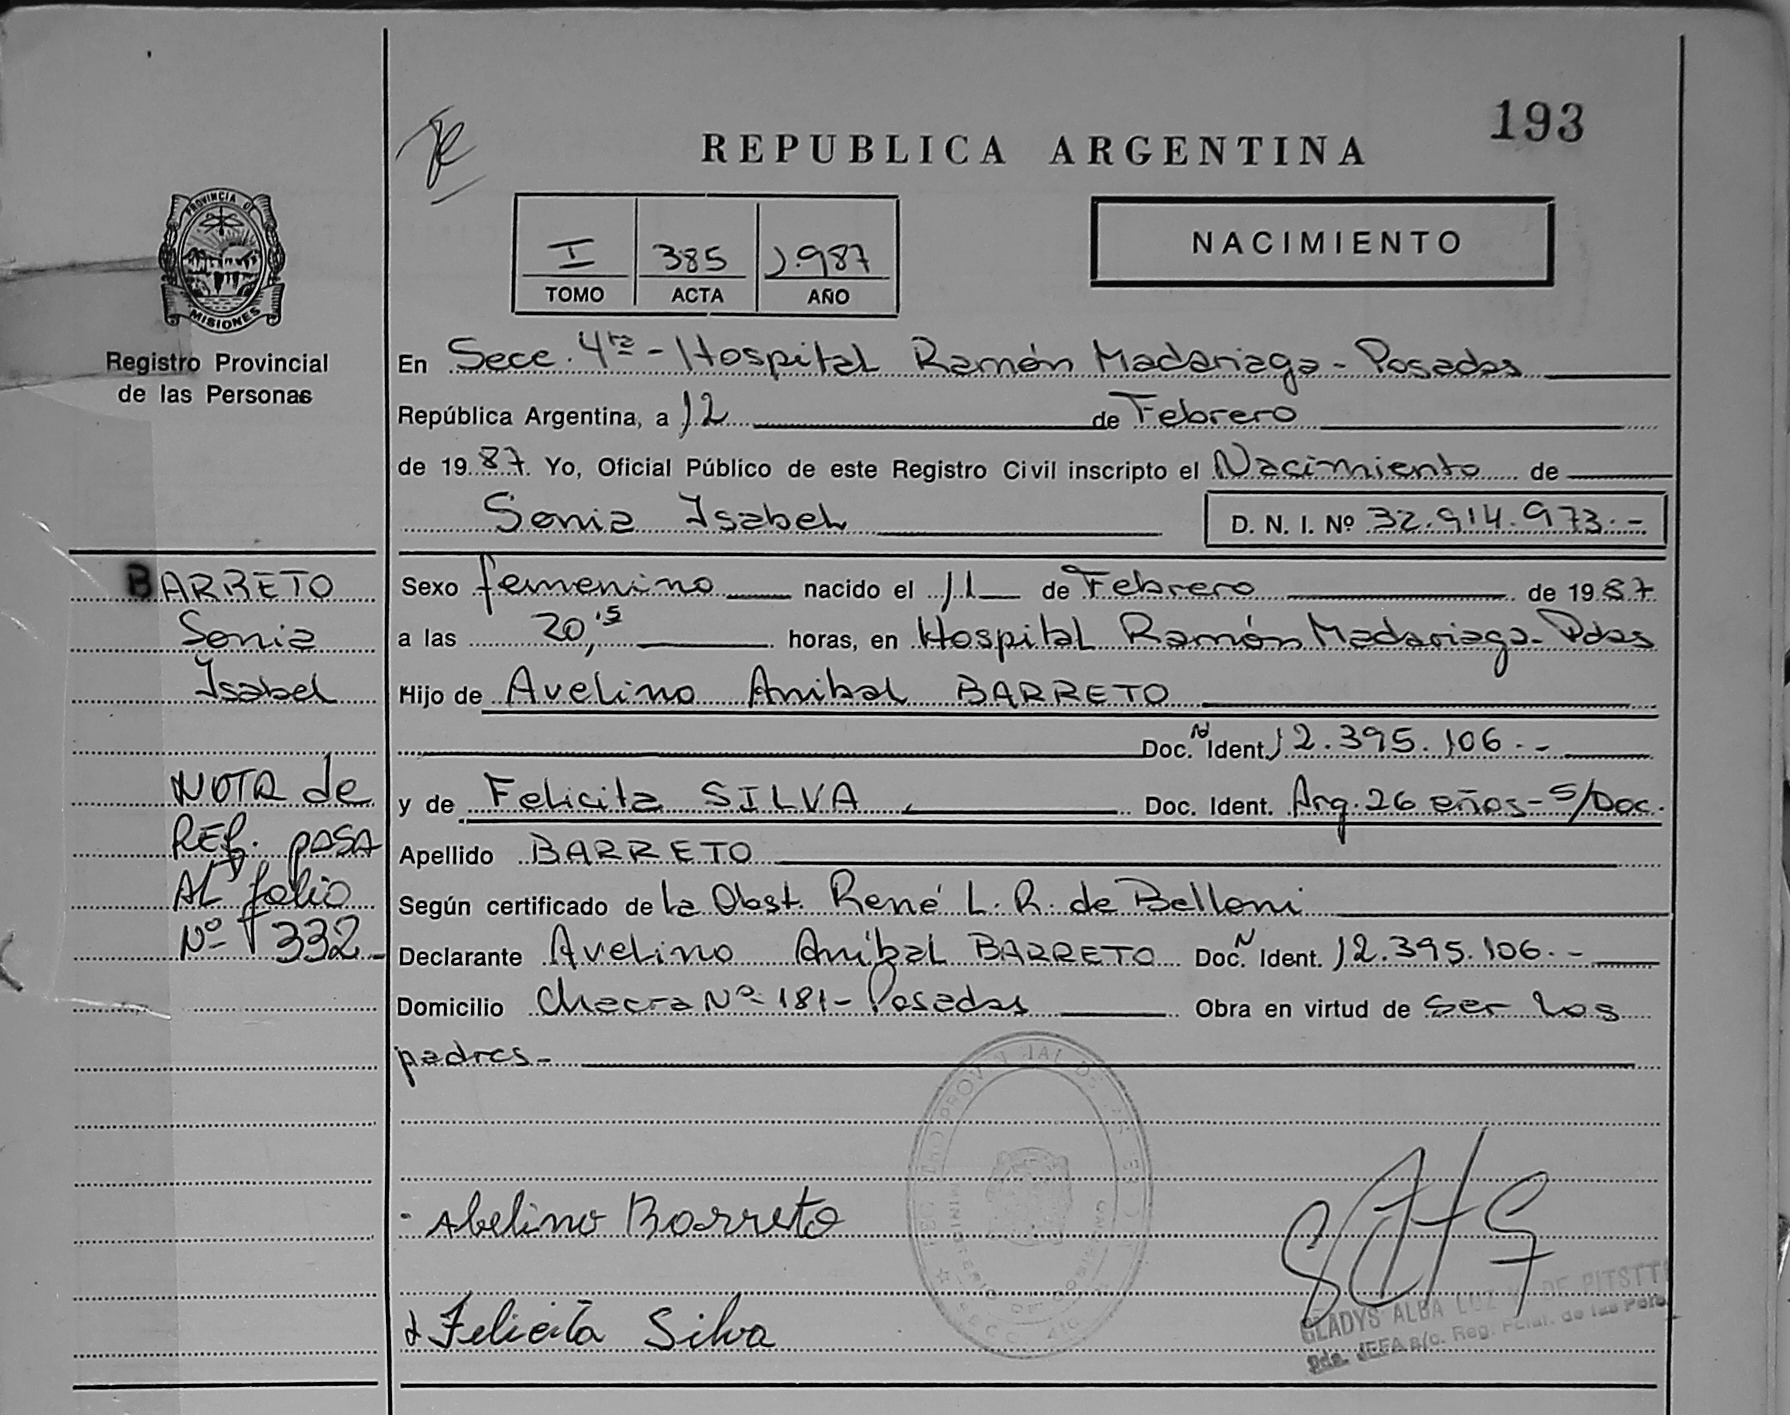 193
REPUBLICA ARGENTINA
NACIMIENTO
I 385 1.987
TOMO ACTA AÑO
PROVINCIA DE
MISIONES
Registro Provincial
de las Personas
En Secc. 4ta - Hospital Ramón Madariaga - Posadas
República Argentina, a 12 de Febrero
de 19 87. Yo, Oficial Público de este Registro Civil inscripto el Nacimiento de
Sonia Isabel D. N. I. Nº 32.914.973.-
BARRETO
Sonia
Isabel
NOTA de
REF. pASA
AL folio
Nº 332
Sexo femenino nacido el 11 de Febrero de 1987
a las 20,15 horas, en Hospital Ramón Madariaga - Pdas
Hijo de Avelino Anibal BARRETO
Doc. N Ident. 12.395.106.-
y de Felicita SILVA Doc. Ident. Arg. 26 años - S/Doc.
Apellido BARRETO
Según certificado de la Obst. René L. R. de Belloni
Declarante Avelino Aníbal BARRETO Doc. N Ident. 12.395.106.-
Domicilio Chacra Nº 181 - Posadas Obra en virtud de ser los
padres.-
Abelino Barreto
Felicita Silva
GLADYS ALBA LUZ DE
JEFA a/c. Reg. Pcial. de las Pers